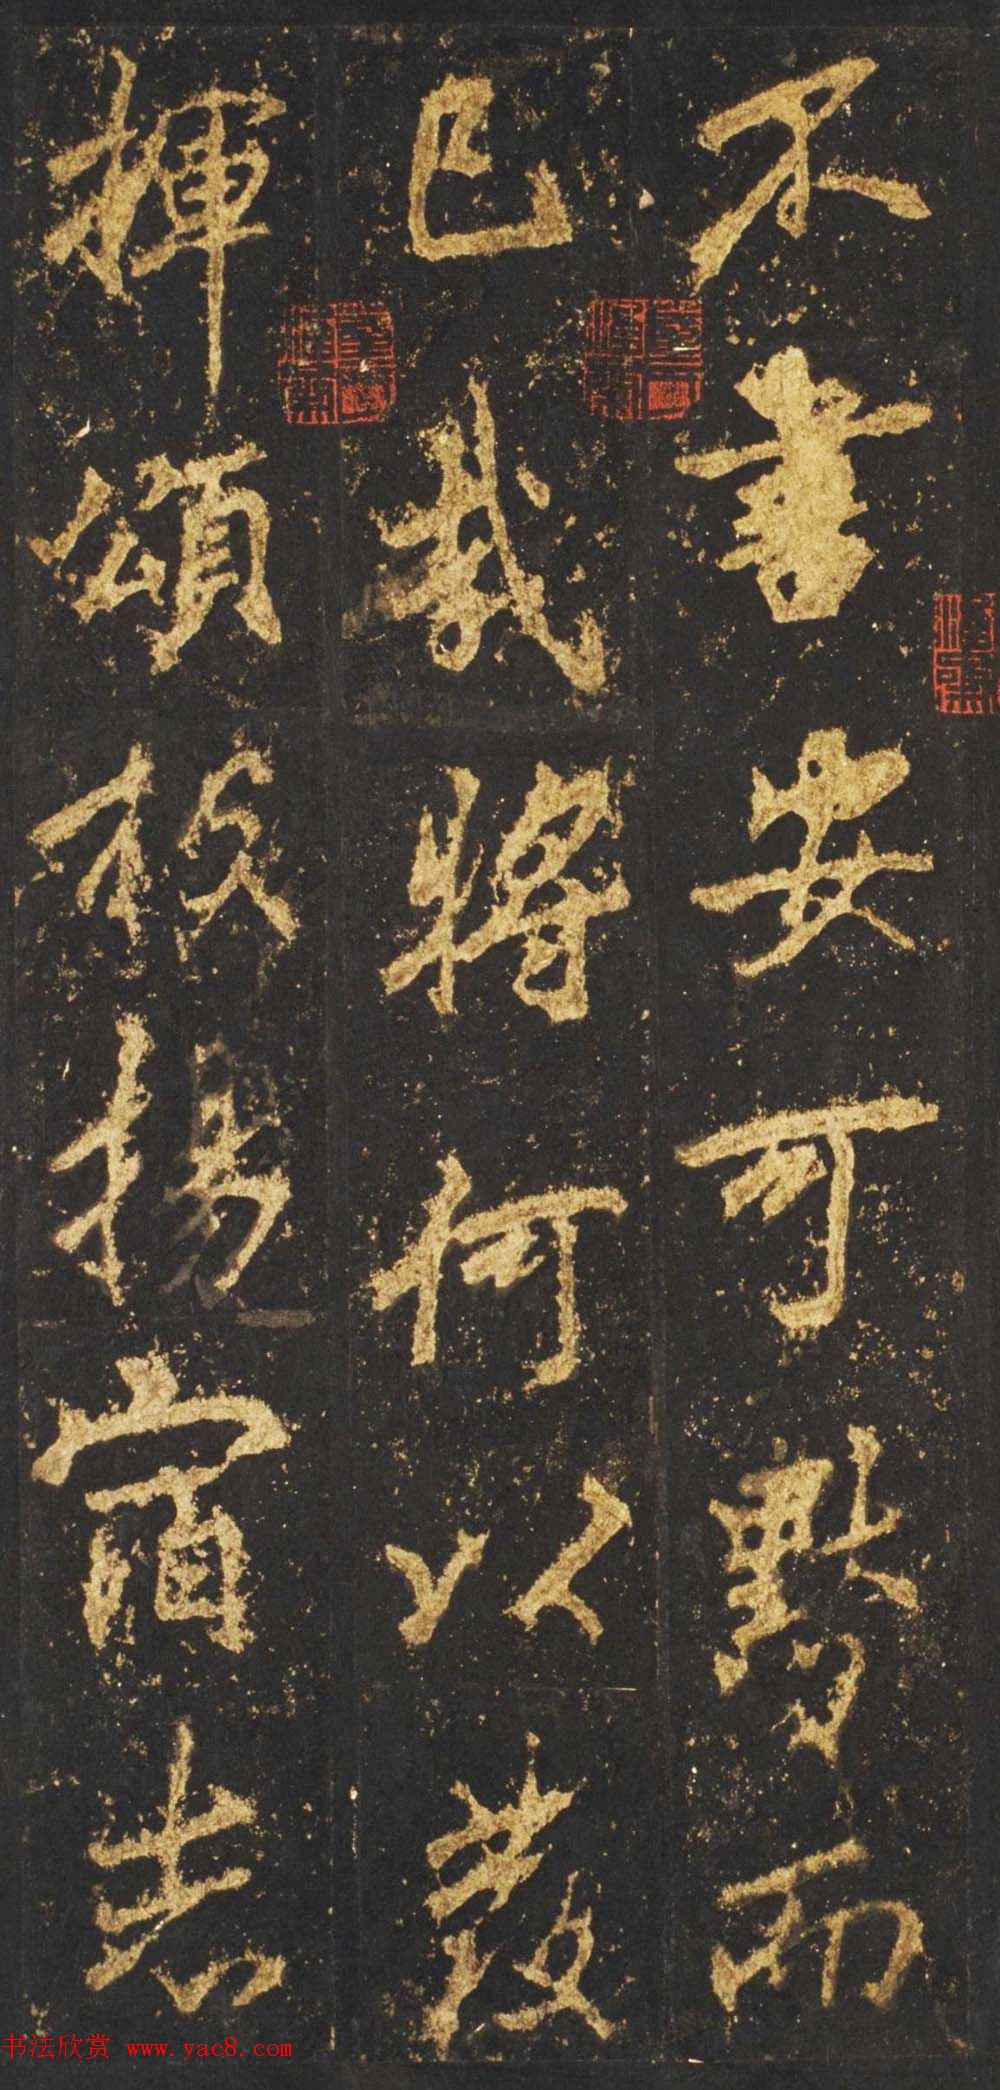 不書安可默而
已哉將何以發
揮頌揚
书法欣赏 www.yac8.com